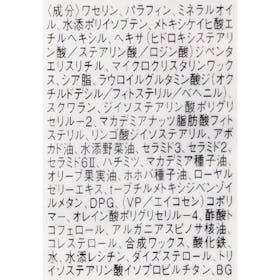 〈成分〉ワセリン、パラフィン、ミネラルオイ
ル、水添ポリイソブテン、メトキシケイヒ酸エ
チルヘキシル、ヘキサ(ヒドロキシステアリ
ン酸／ステアリン酸／ロジン酸)ジペンタ
エリスリチル、マイクロクリスタリンワック
ス、シア脂、ラウロイルグルタミン酸ジ(オ
クチルドデシル／フィトステリル／ベヘニル)、
スクワラン、ジイソステアリン酸ポリグリ
セリル-2、マカデミアナッツ脂肪酸フィト
ステリル、リンゴ酸ジイソステアリル、アボ
カド油、水添野菜油、セラミド3、セラミド2、
セラミド6Ⅱ、ハチミツ、マカデミア種子油、
オリーブ果実油、ホホバ種子油、ローヤル
ゼリーエキス、t-ブチルメトキシジベンゾイ
ルメタン、DPG、(VP／エイコセン)コポリ
マー、オレイン酸ポリグリセリル-4、酢酸ト
コフェロール、アルガニアスピノサ核油、
コレステロール、合成ワックス、酸化鉄、
水、水添レシチン、ダイズステロール、トリ
イソステアリン酸イソプロピルチタン、BG